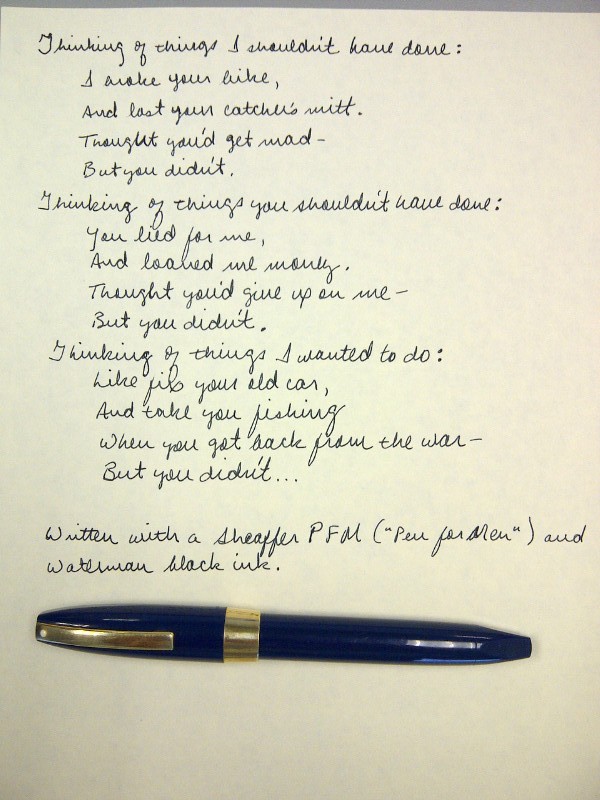 Thinking of things I shouldn't have done:
I broke your bike,
And lost your catcher's mitt.
Thought you'd get mad-
But you didn't.
Thinking of things you shouldn't have done:
You lied for me,
And loaned me money.
Thought you'd give up on me-
But you didn't.
Thinking of things I wanted to do:
Like fix your old car,
And take you fishing
When you got back from the war-
But you didn't...
Written with a Sheaffer PFM ("Pen for Men") and
Waterman black ink.